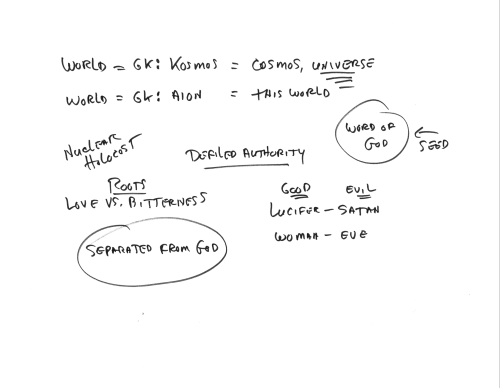 WORLD = GK: KOSMOS = COSMOS, UNIVERSE
WORLD = GK: AION = THIS WORLD
WORD OF
GOD
← SEED
NUCLEAR
HOLOCOST
DEFILED AUTHORITY
ROOTS
LOVE VS. BITTERNESS
GOOD EVIL
LUCIFER – SATAN
WOMAN – EVE
SEPARATED FROM GOD